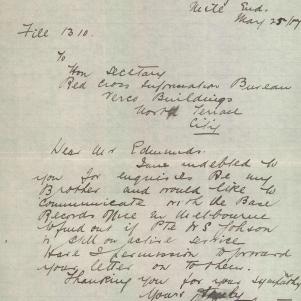 Mile End.
May 25/17
File 1310.
To
Hon Secretary
Red Cross Information Bureau
Verco Buildings
North Terrace
City
Dear Mr Edmunds.
I am indebted to
you for enquiries Re my
Brother and would like to
Communicate with the Base
Records Office in Melbourne
find out if Pte W S Johson
is still on active service
Have I permission to forward
your letter on to them.
Thanking you for your sympathy
Yours